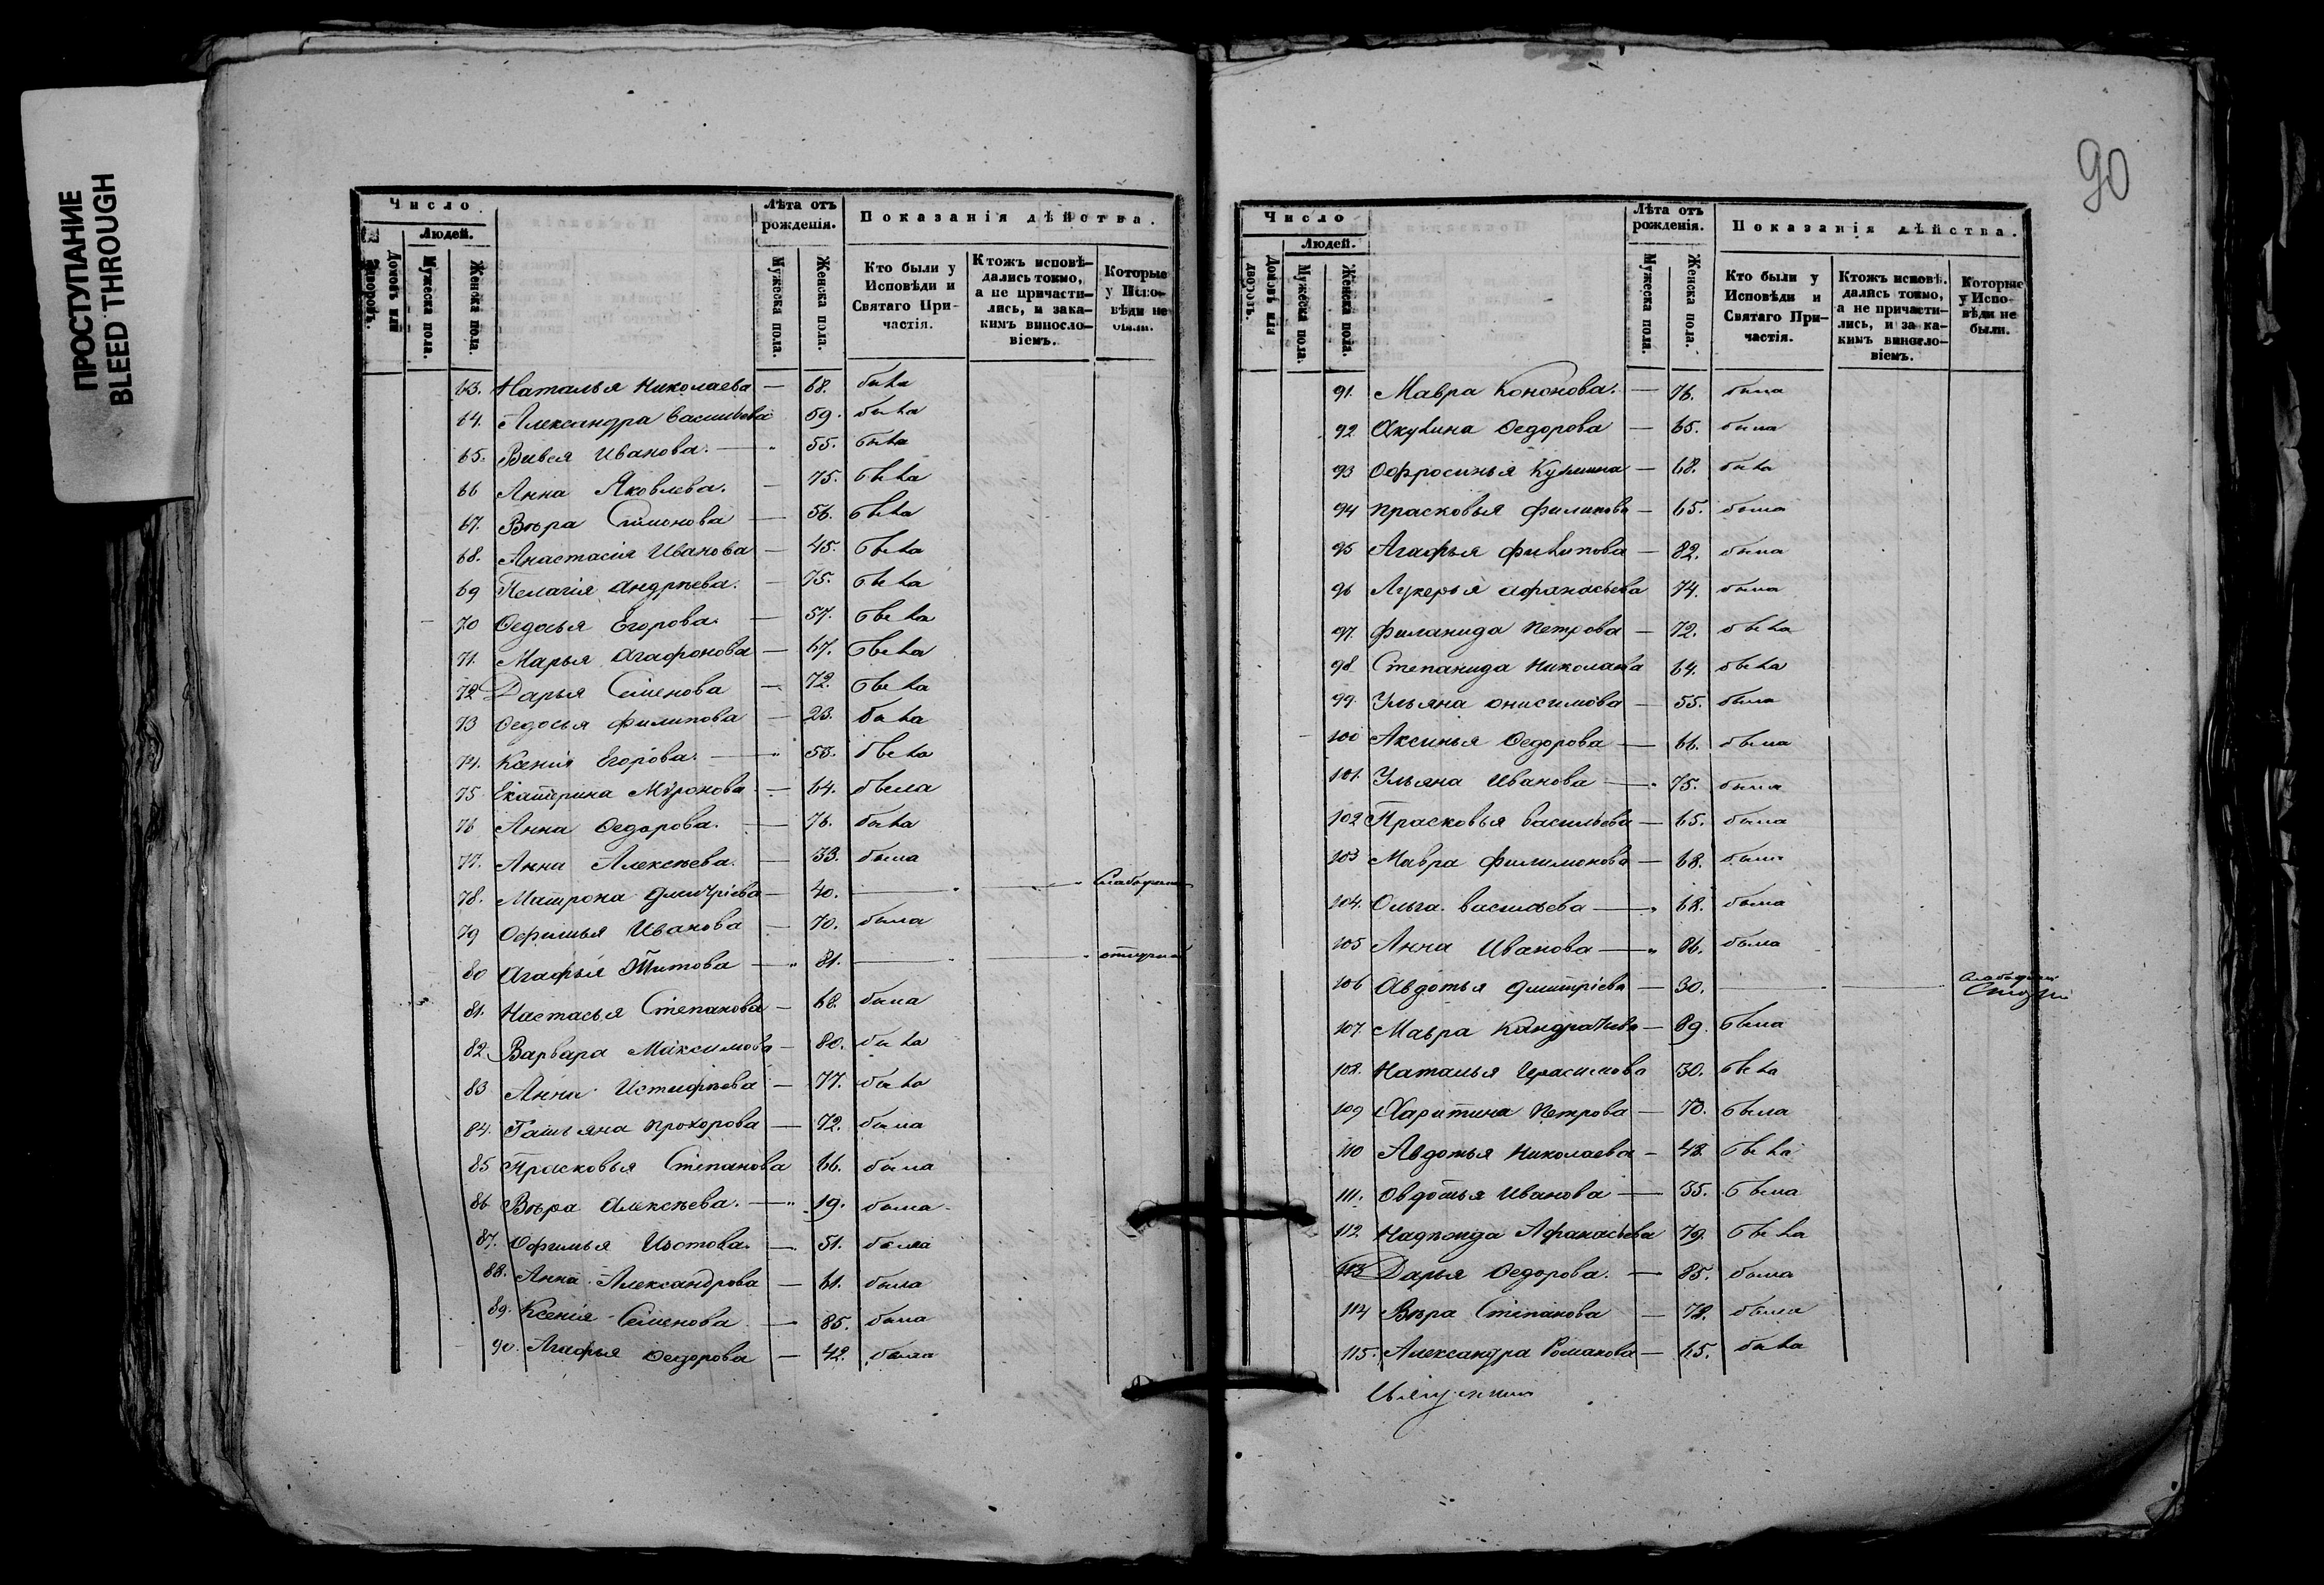 ПРОСТУПАНИЕ
BLEED THROUGH
90
Число
Людей.
Домовъ или дворовъ.
Мужеска пола.
Женска пола.
Лѣта отъ рожденія.
Мужеска пола.
Женска пола.
Показанія дѣйства.
Кто были у Исповѣди и Святаго Причастія.
Ктожъ исповѣдались токмо, а не причастились, и за какимъ винословіемъ.
Которые у Исповѣди не были.
63. Наталья Николаева — 68. была
64. Александра Васильева 59. была
65. Вивея Иванова. — 55. была
66 Анна Яковлева. — 75. была
67. Вѣра Симонова — 56. была
68. Анастасія Иванова — 45. была
69 Пелагія Андрѣева. — 75. была
70 Ѳедосья Егорова. — 57. была
71. Марья Агафонова — 67. была
72 Дарья Семенова — 72. была
73 Ѳедосья Филипова — 23. была
74. Ксенія Егорова. — 53. была
75 Екатерина Миронова — 64. была
76 Анна Ѳедорова. — 76. была
77. Анна Алексѣева. — 33. была
78. Матрона Дмитріева — 40. —
79 Офимья Иванова — 70. была
80 Агафья Титова — 81. —
81. Настасья Степанова — 68. была
82. Варвара Максимова — 80. была
83 Анна Истифѣева — 77. была
84. Татьяна Прохорова — 72. была
85 Прасковья Степанова 66. была
86 Вѣра Алексѣева. — 19. была
87. Офимья Изотова. — 51. была
88. Анна Александрова — 61. была
89. Ксенія Семенова — 85. была
90. Агафья Ѳедорова — 42. была
Число
Людей.
Домовъ или дворовъ.
Мужеска пола.
Женска пола.
Лѣта отъ рожденія.
Мужеска пола.
Женска пола.
Показанія дѣйства.
Кто были у Исповѣди и Святаго Причастія.
Ктожъ исповѣдались токмо, а не причастились, и за какимъ винословіемъ.
Которые у Исповѣди не были.
91. Мавра Кононова. — 76. была
92 Акулина Ѳедорова — 65. была
93 Офросинья Кузмина — 68. была
94 Прасковья Филипова — 65. была
95 Агафья Филипова — 82. была
96 Лукерья Афанасьева 74. была
97. Филанида Петрова — 72. была
98. Степанида Николаева 64. была
99. Ульяна Онисимова — 55. была
100 Аксинья Ѳедорова — 66. была
101. Ульяна Иванова — 75. была
102 Прасковья Васильева — 65. была
103 Мавра Филимонова — 68. была
104. Ольга Васильева — 68. была
105 Анна Иванова — 86. была
106 Авдотья Дмитріева — 30. —
107. Мавра Кандратьева — 89. была
108. Наталья Герасимова 30. была
109 Харитина Петрова — 70. была
110 Авдотья Николаева — 48. была
111. Овдотья Иванова — 35. была
112. Надѣжда Афанасьева 79. была
113 Дарья Ѳедорова. — 85. была
114 Вѣра Степанова — 78. была
115. Александра Романова — 65. была